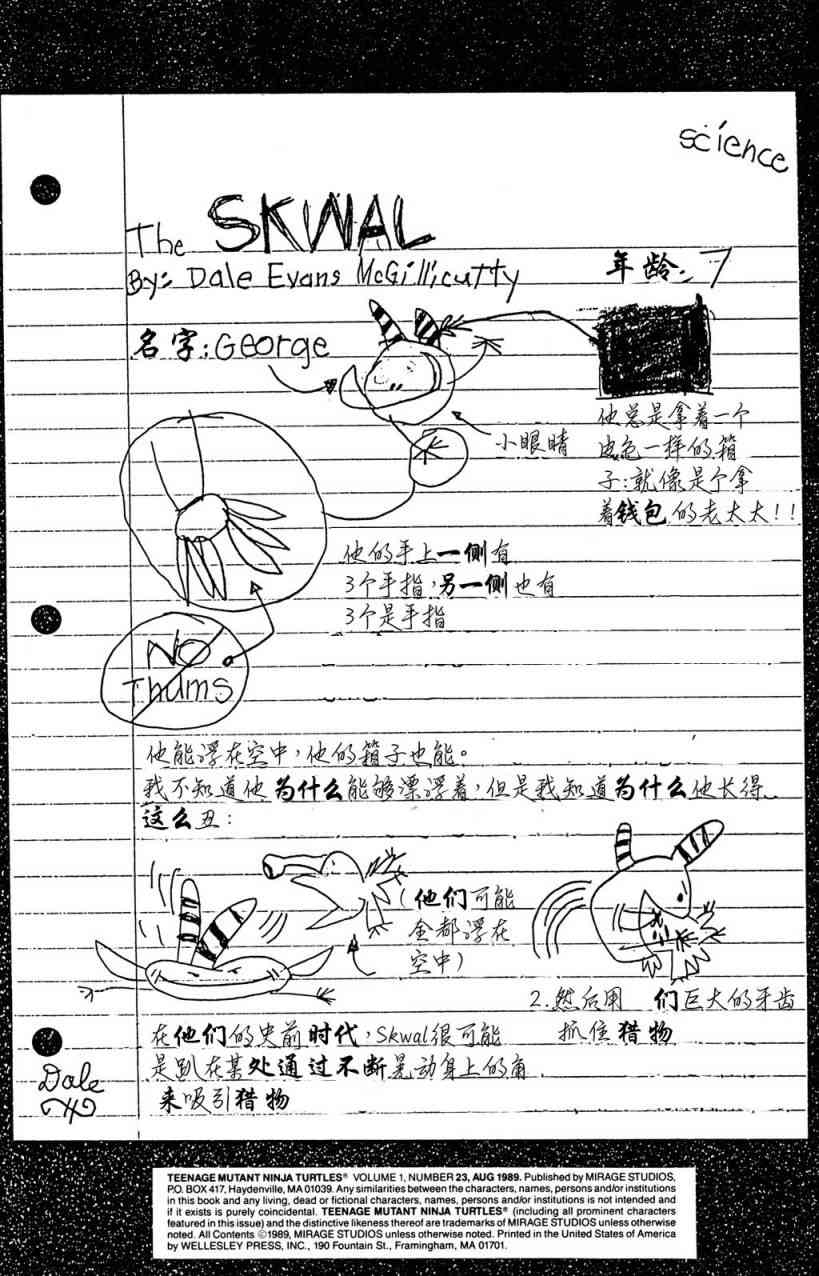 science
The SKWAL
By: Dale Evans McGillicutty
年龄: 7
名字:George
小眼睛
他总是拿着一个
皮色一样的箱
子:就像是个拿
着钱包的老太太!!
他的手上一侧有
3个手指,另一侧也有
3个是手指
NO
Thums
他能浮在空中,他的箱子也能。
我不知道他为什么能够漂浮着,但是我知道为什么他长得
这么丑:
(他们可能
全都浮在
空中)
2.然后用 们巨大的牙齿
抓住猎物
在他们的史前时代,Skwal很可能
是趴在某处通过不断晃动身上的角
来吸引猎物
Dale
TEENAGE MUTANT NINJA TURTLES® VOLUME 1, NUMBER 23, AUG 1989. Published by MIRAGE STUDIOS,
P.O. BOX 417, Haydenville, MA 01039. Any similarities between the characters, names, persons and/or institutions
in this book and any living, dead or fictional characters, names, persons and/or institutions is not intended and
if it exists is purely coincidental. TEENAGE MUTANT NINJA TURTLES® (including all prominent characters
featured in this issue) and the distinctive likeness thereof are trademarks of MIRAGE STUDIOS unless otherwise
noted. All Contents ©1989, MIRAGE STUDIOS unless otherwise noted. Printed in the United States of America
by WELLESLEY PRESS, INC., 190 Fountain St., Framingham, MA 01701.